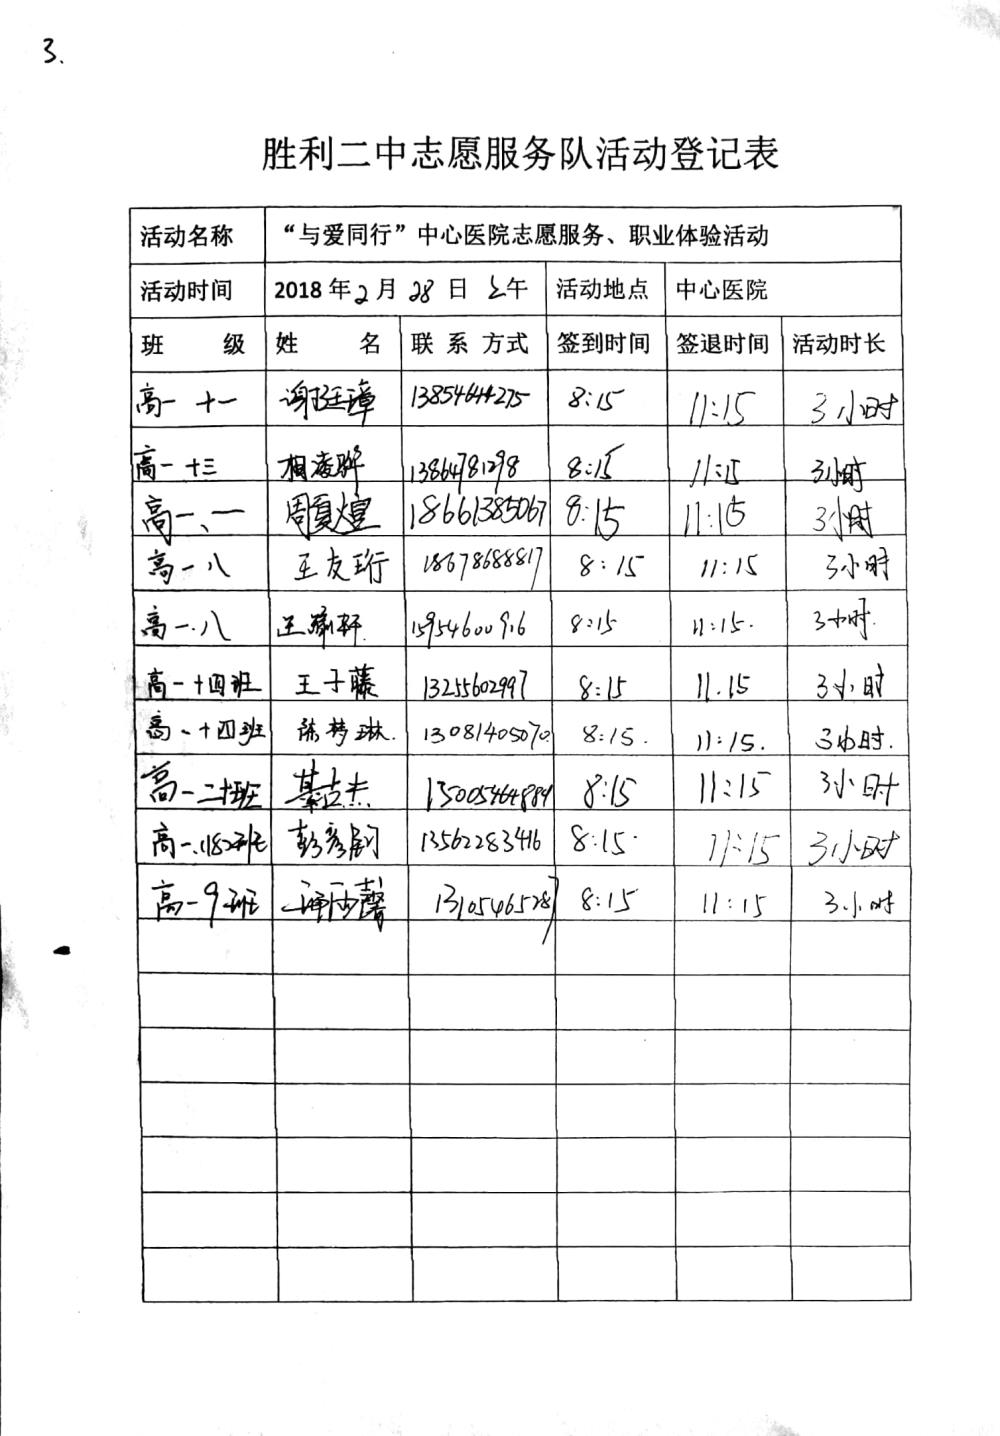 3.
胜利二中志愿服务队活动登记表
活动名称 “与爱同行”中心医院志愿服务、职业体验活动
活动时间 2018年2月28日 上午 活动地点 中心医院
班 级 姓 名 联 系 方式 签到时间 签退时间 活动时长
高一十一 谢廷璋 13854644275 8:15 11:15 3小时
高一十三 相凌骅 13864781298 8:15 11:15 3小时
高一、一 周夏煌 18661385067 8:15 11:15 3小时
高一八 王友珩 18678688817 8:15 11:15 3小时
高一.八 王瀚轩 15954600916 8:15 11:15. 3小时.
高一十四班 王子藤 13255602997 8:15 11.15 3小时
高一十四班 陈梦琳. 13081405070 8:15. 11:15. 3小时.
高一二十班 綦占杰 15005464889 8:15 11:15 3小时
高一.(18)班 彭彦 13562283416 8:15 11:15 3小时
高一9班 馨 13105465287 8:15 11:15 3小时